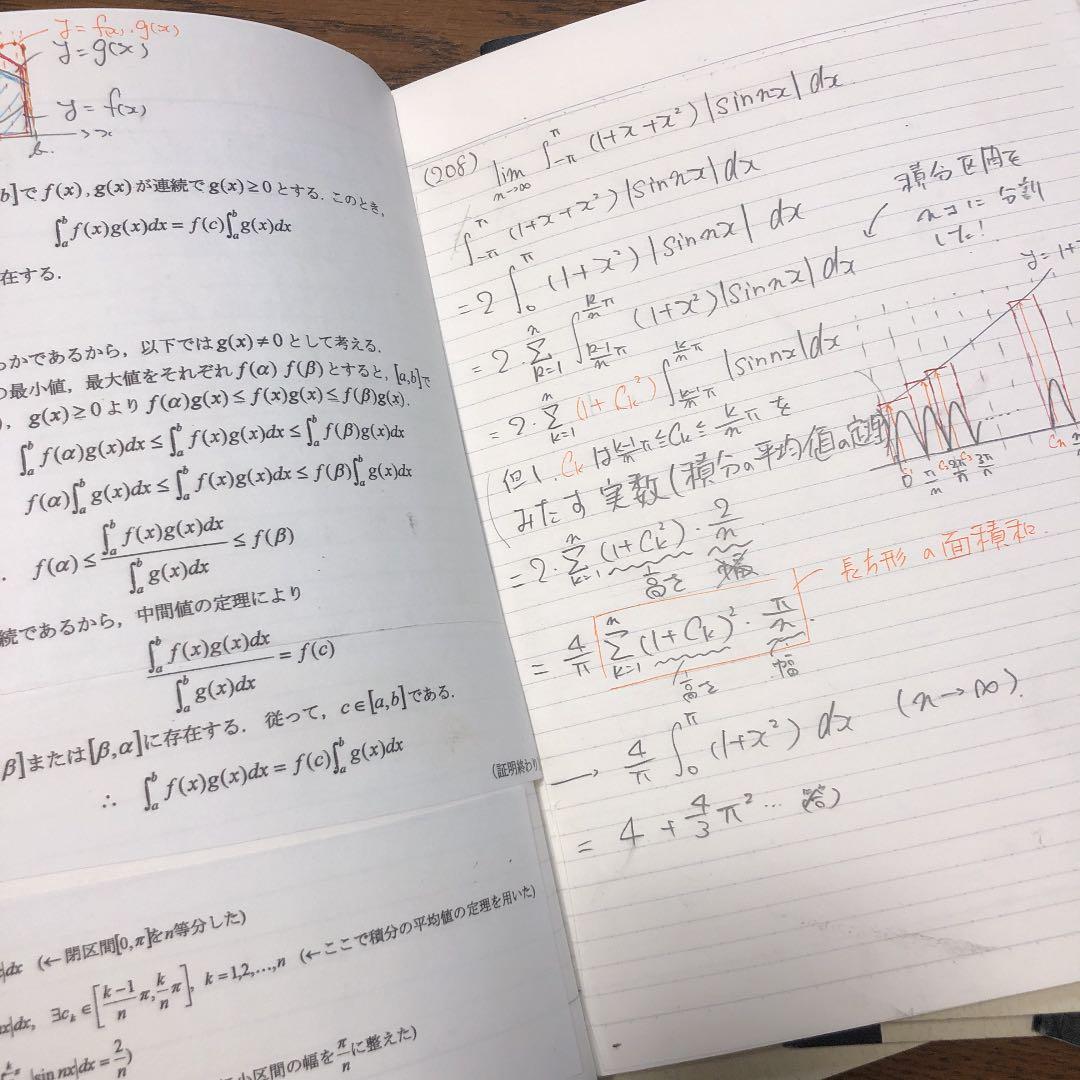 y = f(x)·g(x)
y = g(x)
y = f(x)
→x
b
b]でf(x),g(x)が連続でg(x)≥0とする.このとき,
∫_a^b f(x)g(x)dx = f(c)∫_a^b g(x)dx
在する.
かであるから,以下ではg(x)≠0として考える.
の最小値,最大値をそれぞれf(α) f(β)とすると,[a,b]で
),g(x)≥0よりf(α)g(x)≤f(x)g(x)≤f(β)g(x).
∫_a^b f(α)g(x)dx ≤ ∫_a^b f(x)g(x)dx ≤ ∫_a^b f(β)g(x)dx
f(α)∫_a^b g(x)dx ≤ ∫_a^b f(x)g(x)dx ≤ f(β)∫_a^b g(x)dx
. f(α) ≤ ∫_a^b f(x)g(x)dx / ∫_a^b g(x)dx ≤ f(β)
続であるから,中間値の定理により
∫_a^b f(x)g(x)dx / ∫_a^b g(x)dx = f(c)
β]または[β,α]に存在する.従って,c∈[a,b]である.
∴ ∫_a^b f(x)g(x)dx = f(c)∫_a^b g(x)dx
(証明終わり
|dx (←閉区間[0,π]をn等分した)
nx|dx, ∃c_k∈[(k-1)/n π, k/n π], k=1,2,…,n (←ここで積分の平均値の定理を用いた)
|sin nx|dx = 2/n)
小区間の幅をπ/nに整えた)
(208) lim_{n→∞} ∫_{-π}^{π} (1+x+x²)|sin nx|dx
∫_{-π}^{π} (1+x+x²)|sin nx|dx
= 2∫_0^π (1+x²)|sin nx|dx
= 2 Σ_{k=1}^n ∫_{(k-1)/n π}^{k/n π} (1+x²)|sin nx|dx
積分区間を
nコに分割
した!
= 2·Σ_{k=1}^n (1+C_k²) ∫_{(k-1)/n π}^{k/n π} |sin nx|dx
(但し. C_kは (k-1)/n π ≦ C_k ≦ k/n π を
みたす実数(積分の平均値の定理
= 2·Σ_{k=1}^n (1+C_k²)·2/n
高さ 幅
= 4/π Σ_{k=1}^n (1+C_k)²·π/n
高さ 幅
長方形の面積和.
→ 4/π ∫_0^π (1+x²) dx (n→∞).
= 4 + 4/3 π² … 答)
y = 1+
0 π/n 2π/n 3π/n
C_n